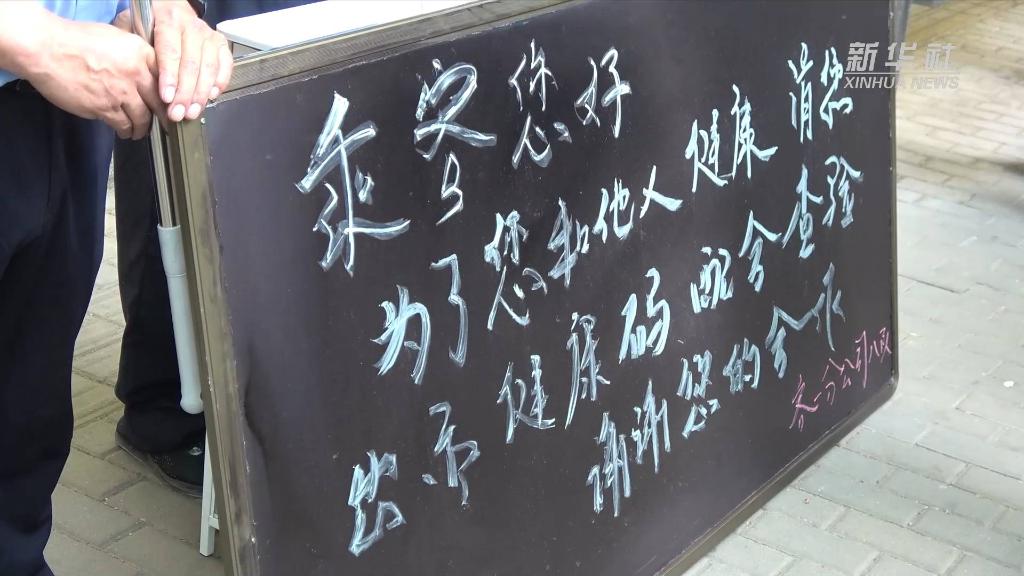 乘客您好
为了您和他人健康 请您
出示健康码 配合查验
谢谢您的合作
分公司
新华社
XINHUA NEWS